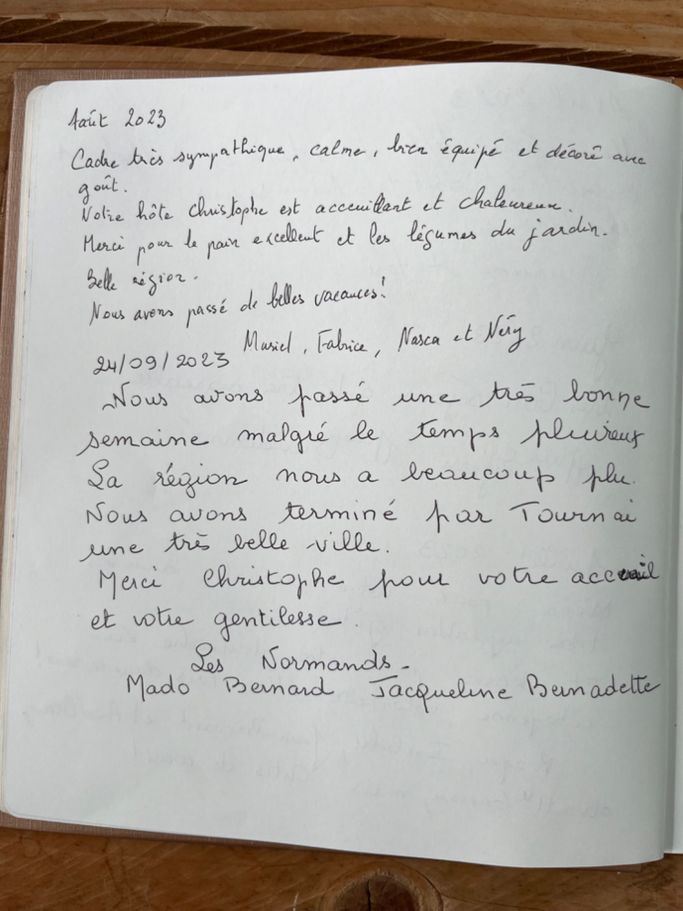 Août 2023
Cadre très sympathique, calme, bien équipé et décoré avec
goût.
Votre hôte Christophe est acceuillant et chaleureux.
Merci pour le pain excellent et les légumes du jardin.
Belle région.
Nous avons passé de belles vacances!
Muriel, Fabrice, Nasca et Néry
24/09/2023
Nous avons passé une très bonne
semaine malgré le temps pluvieux
La région nous a beaucoup plu.
Nous avons terminé par Tournai
une très belle ville.
Merci Christophe pour votre accueil
et votre gentilesse.
Les Normands-
Mado Bernard Jacqueline Bernadette